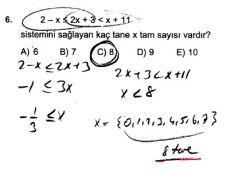 6. 2 - x ≤ 2x + 3 < x + 11
sistemini sağlayan kaç tane x tam sayısı vardır?
A) 6 B) 7 C) 8 D) 9 E) 10
2 - x ≤ 2x + 3
2x + 3 < x + 11
-1 ≤ 3x
x < 8
-1/3 ≤ x
x = {0,1,2,3,4,5,6,7}
8 tane